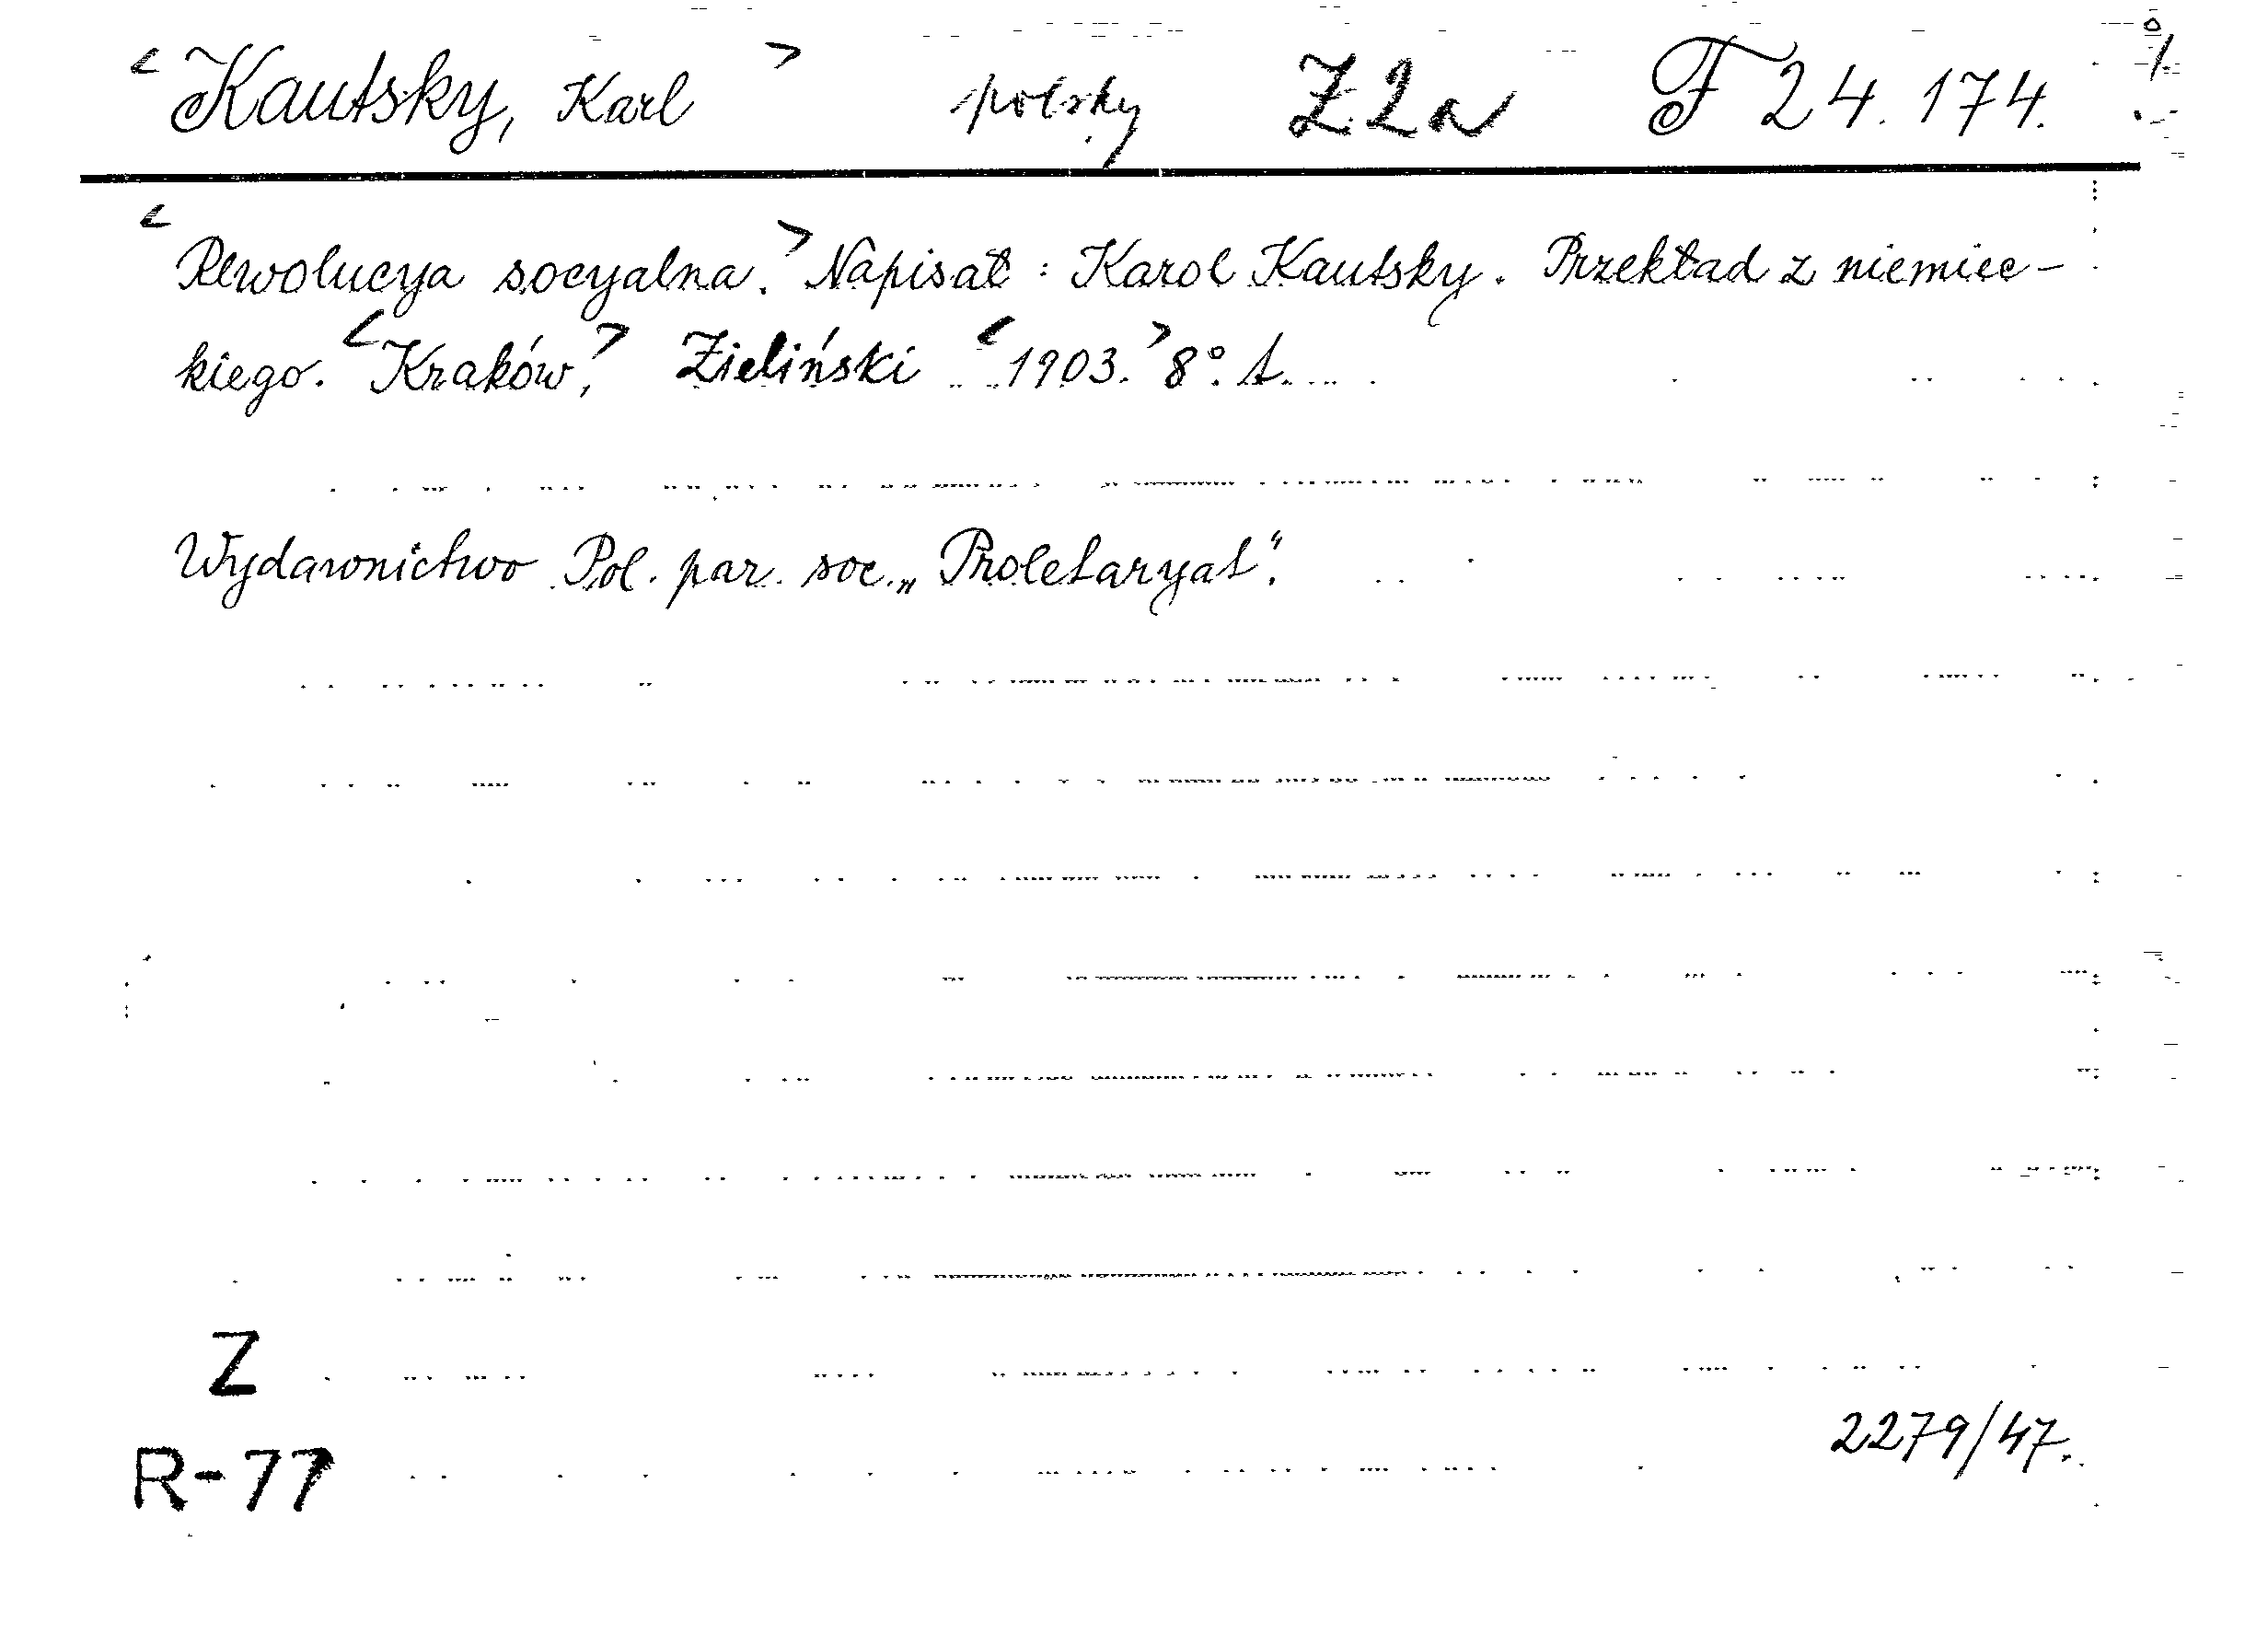 <Kautsky, Karl> polsky Z2a F 24.174.
<Rewolucya socyalna.> Napisał: Karol Kautsky. Przekład z niemiec-
kiego. <Kraków,> Zieliński <1903.> 8°. t.
Wydawnictwo Pol. par. soc. „Proletaryat".
Z
2279/47.
R-77